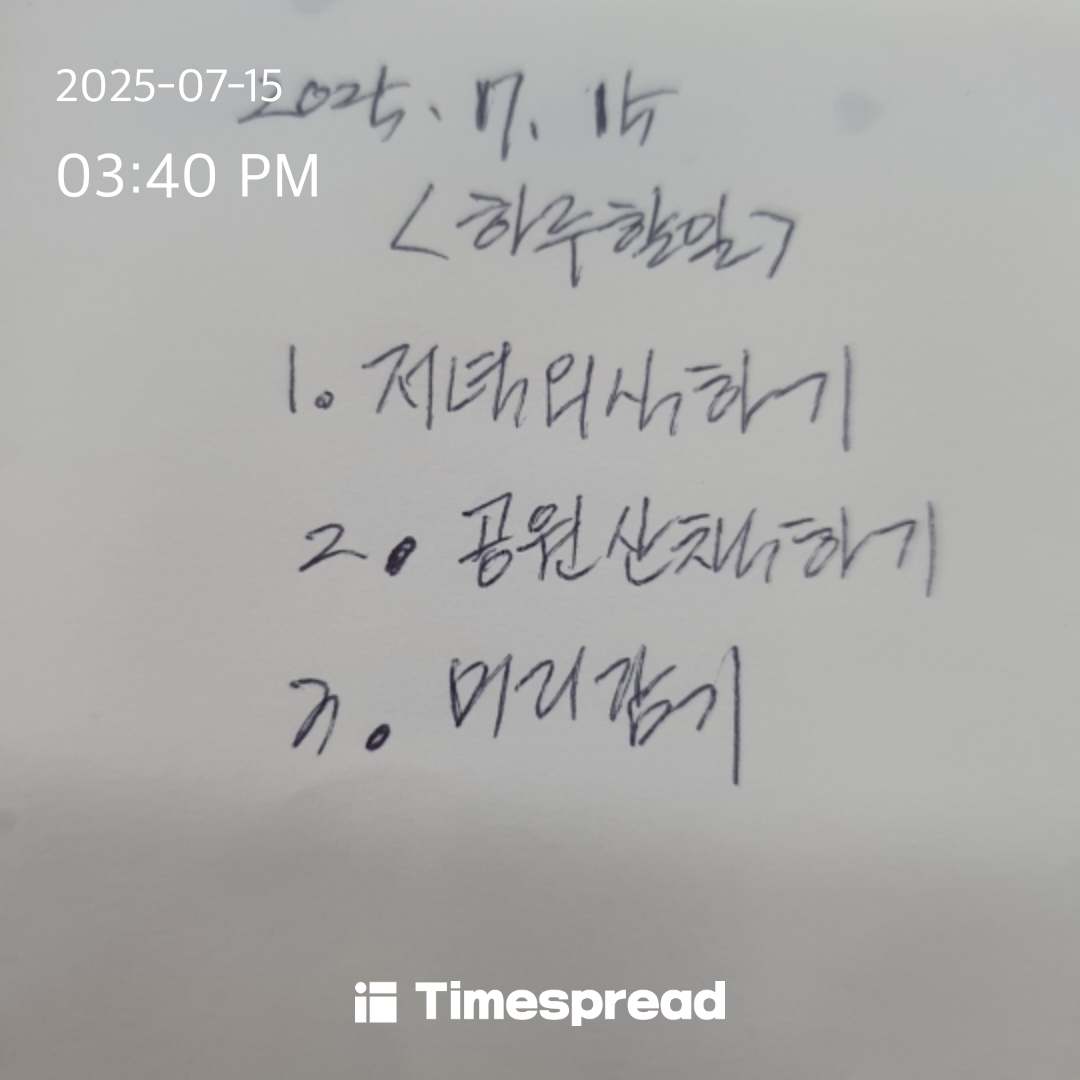 2025-07-15
03:40 PM
2025. 7. 15
<하루할일>
1. 저녁외식하기
2. 공원산책하기
3. 머리감기
Timespread